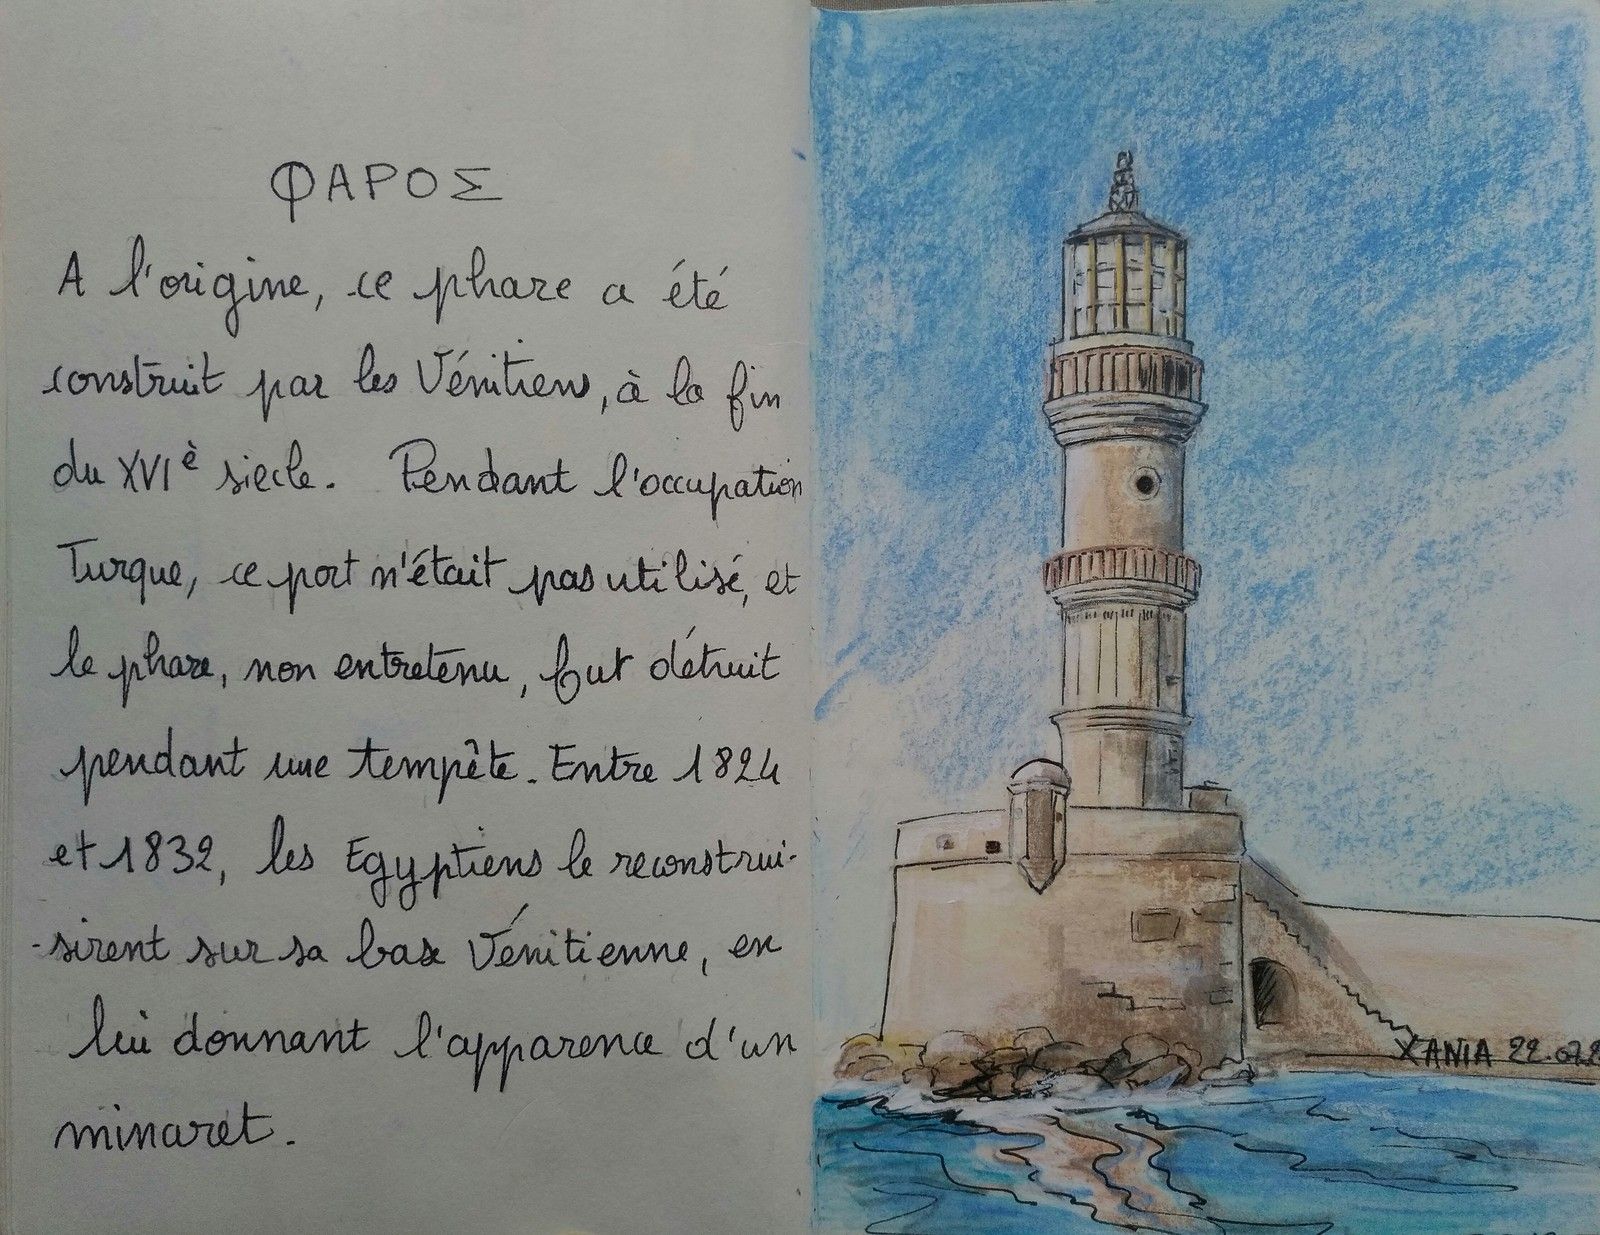 ΦΑΡΟΣ
A l'origine, ce phare a été
construit par les Vénitiens, à la fin
du XVIè siècle. Pendant l'occupation
Turque, ce port n'était pas utilisé, et
le phare, non entretenu, fut détruit
pendant une tempête. Entre 1824
et 1832, les Egyptiens le reconstrui-
-sirent sur sa base Vénitienne, en
lui donnant l'apparence d'un
minaret.
XANIA 22.07.2